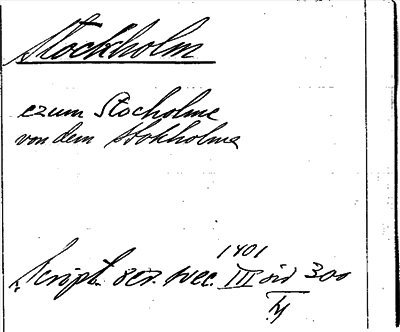 Stockholm
czum Stocholme
von dem Stokholme
1401
Script. rer. svec. III sid 300